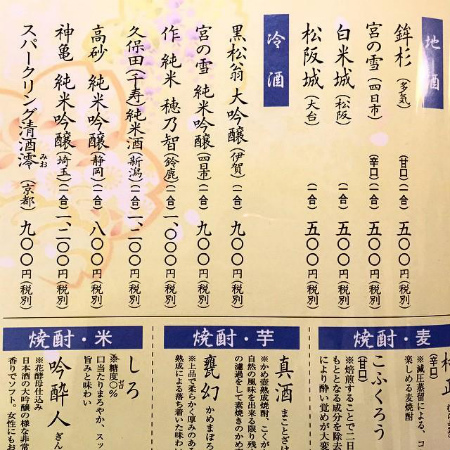 地酒
鉾杉（多気）（甘口）（一合）五〇〇円（税別）
宮の雪（四日市）（辛口）（一合）五〇〇円（税別）
白米城（松阪）（一合）五〇〇円（税別）
松阪城（大台）（一合）五〇〇円（税別）
冷酒
黒松翁 大吟醸（伊賀）（一合）九〇〇円（税別）
宮の雪 純米吟醸（四日市）（一合）九〇〇円（税別）
作、純米 穂乃智（鈴鹿）（一合）一、〇〇〇円（税別）
久保田（千寿）純米酒（新潟）（一合）一、二〇〇円（税別）
高砂 純米吟醸（静岡）（一合）八〇〇円（税別）
神亀 純米吟醸（埼玉）（一合）一、二〇〇円（税別）
スパークリング清酒澪（京都）九〇〇円（税別）
みお
焼酎・麦
※減圧蒸留による、コ
楽しめる麦焼酎
こふくろう
（甘口）
※焙煎することで二日
もととなる成分を除去
により酔い覚めが大変
焼酎・芋
真酒 まことざけ
※かめ壺熟成焼酎、こくが
自然の風味を出来る限り残
の濾過をして素焼きのかめ
甕幻 かめまぼろ
※上品で柔らかく厚みのあ
熟成による落ち着いた味わい
焼酎・米
しろ
※糖度〇%
口当たりまろやか、スッ
旨みと味わい
吟酔人 ぎん
※花酵母仕込み
日本酒の大吟醸の様な非常
香りでソフト。女性にもお